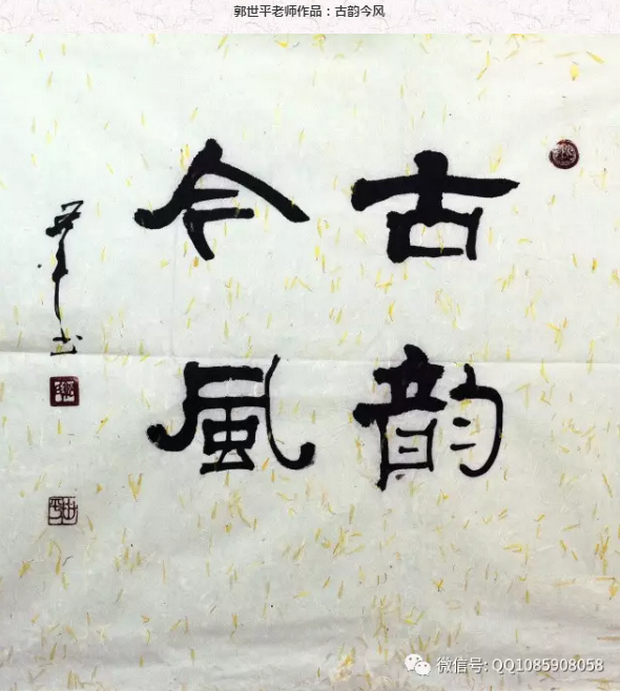 郭世平老师作品：古韵今风
古韵
今風
世平书
微信号: QQ1085908058